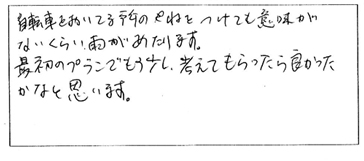 自転車をおいてる所のやねをつけても意味が
ないくらい雨があたります。
最初のプランでもう少し、考えてもらったら良かった
かなと思います。